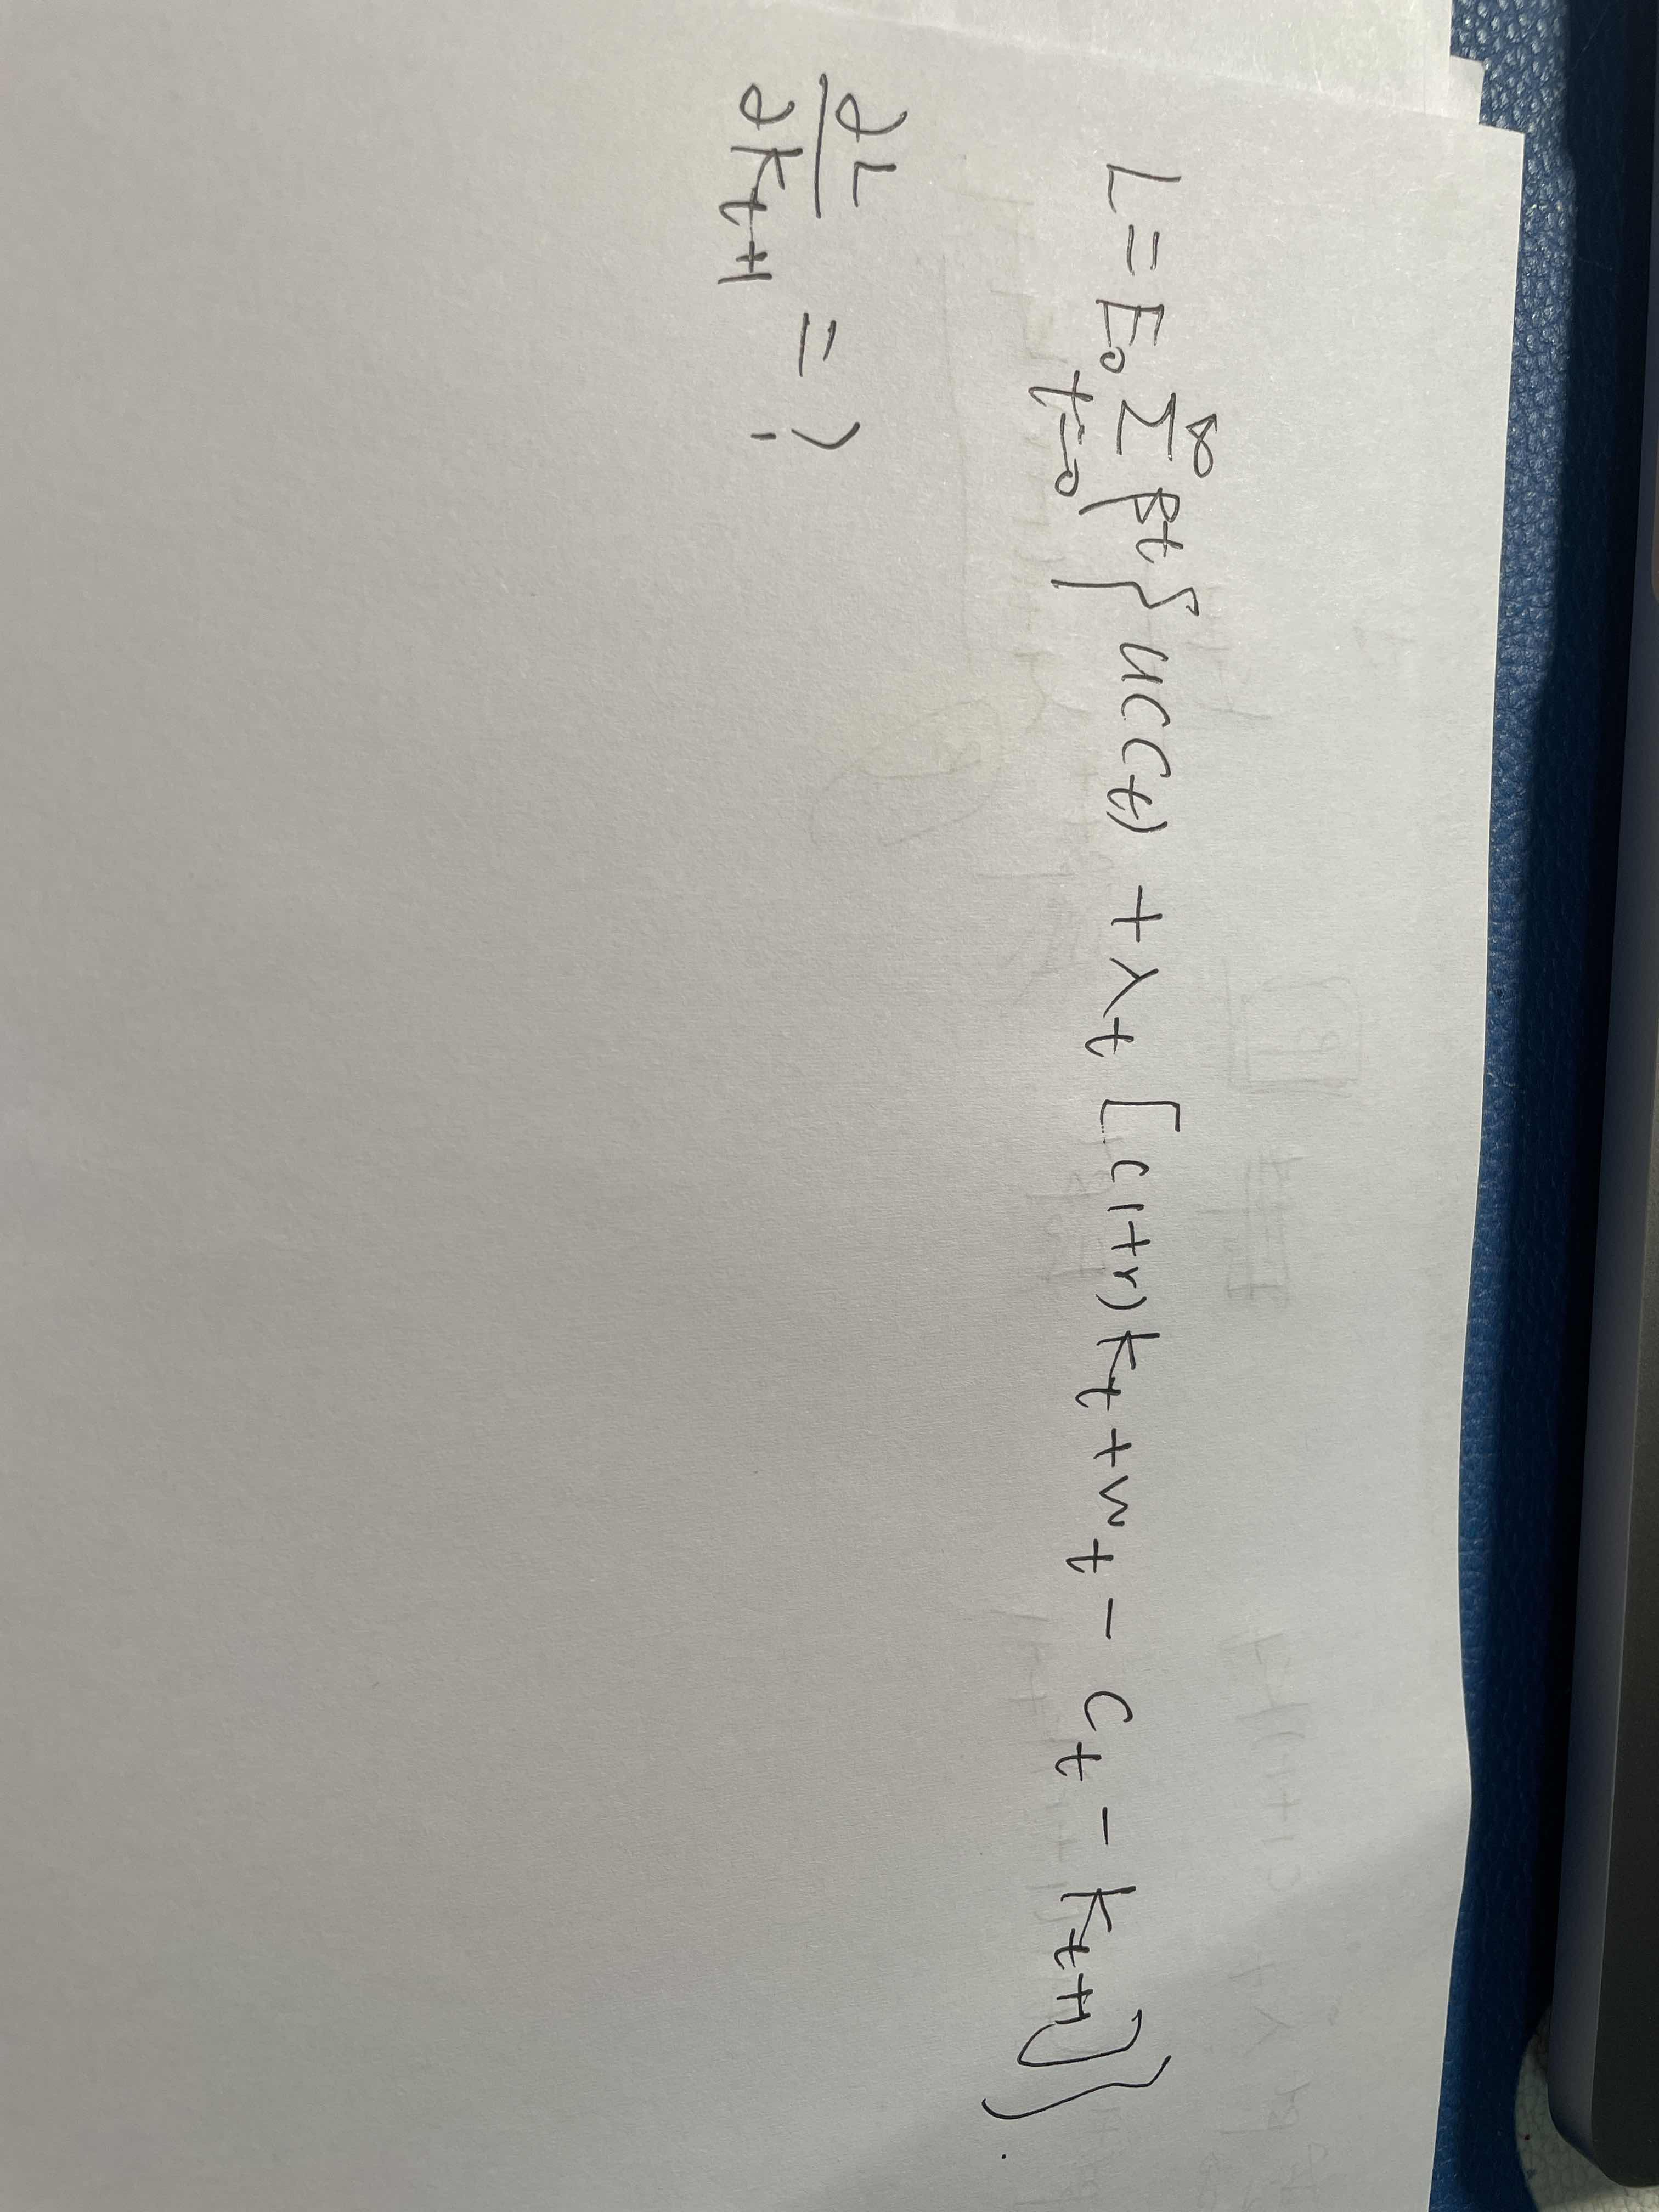 L = E₀ ∑_{t=0}^{∞} βᵗ { u(Cₜ) + λₜ [ (1+r) kₜ + wₜ - Cₜ - kₜ₊₁ ] } .
∂L/∂kₜ₊₁ = ?